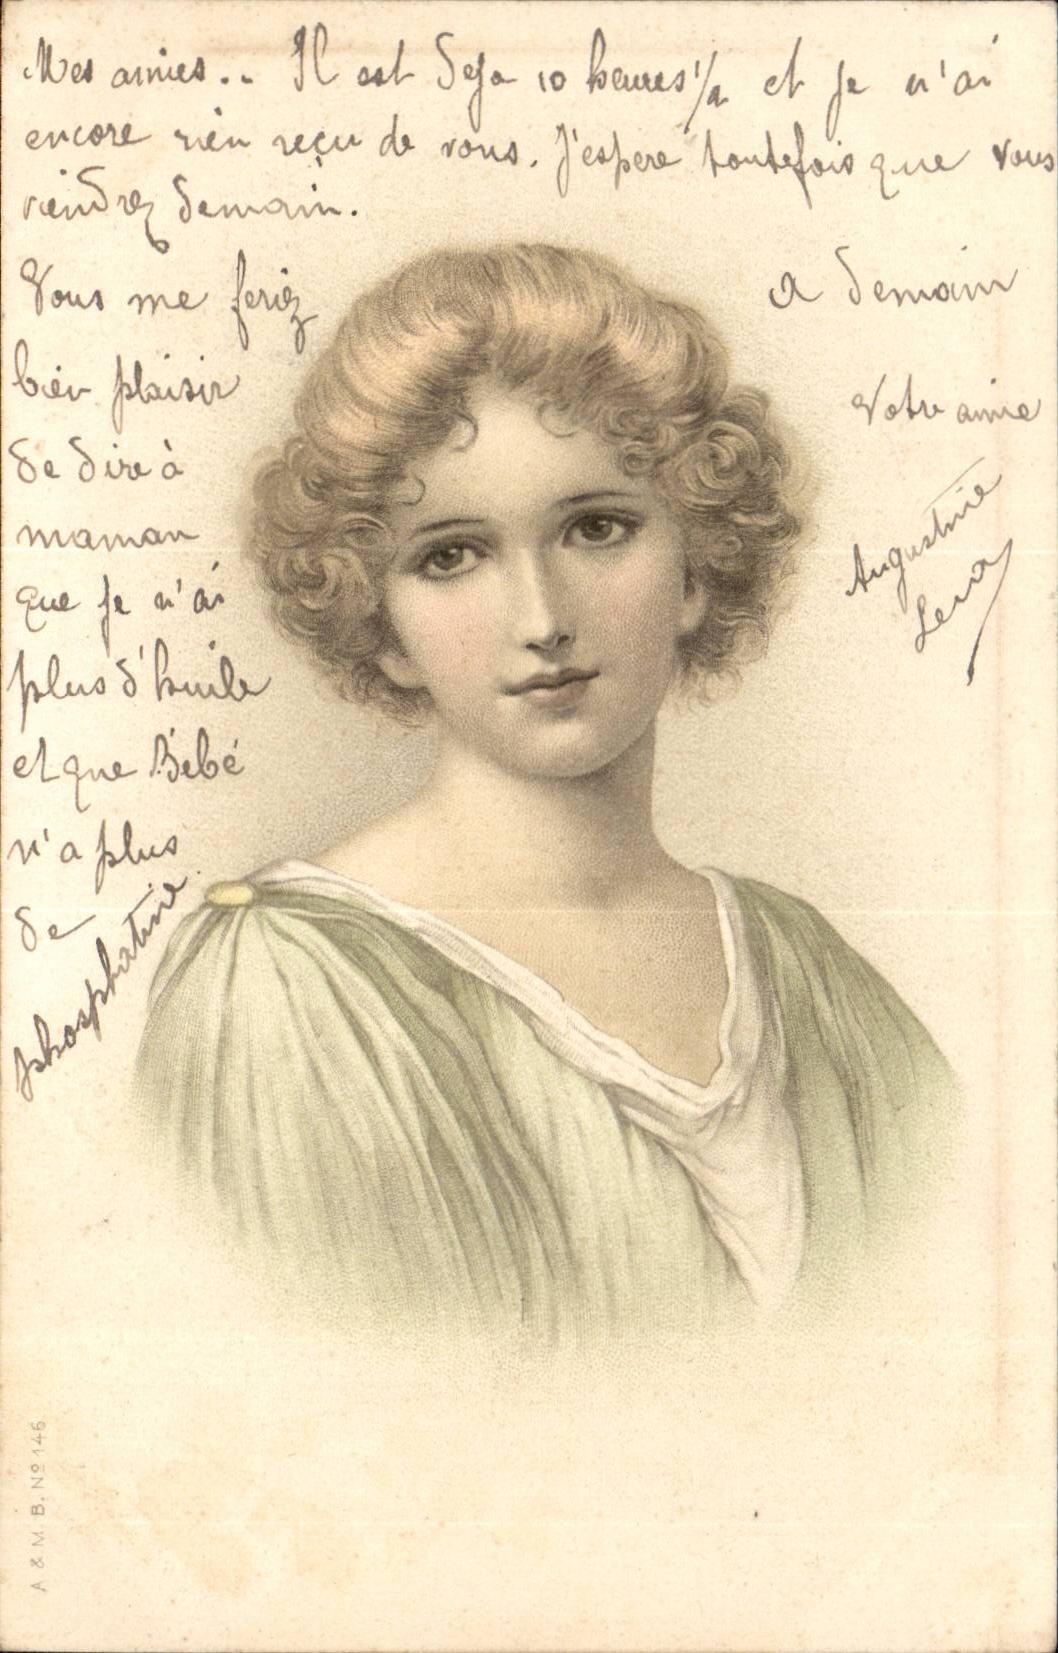 Mes amies.. Il est deja 10 heures 1/2 et je n'ai
encore rien reçu de vous. J'espere toutefois que vous
viendrez demain.
Vous me feriez
bien plaisir
de dire à
maman
que je n'ai
plus d'huile
et que Bébé
n'a plus
de
phosphatine.
A demain
Votre amie
Augustine
Lena
A & M. B. No 146